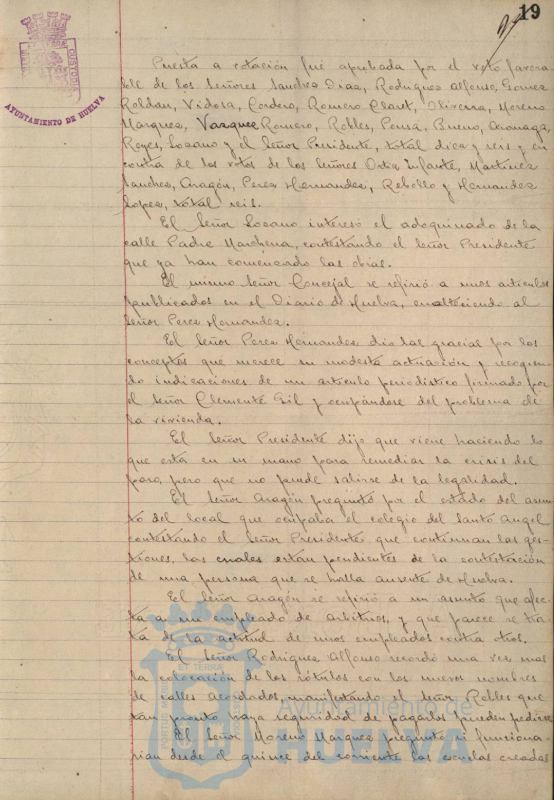 19
AYUNTAMIENTO DE HUELVA
Puesta a votación fué aprobada por el voto favora-
ble de los Señores Sanchez Diaz, Rodriguez Alfonso, Gomez
Roldan, Vidosa, Cordero, Romero Claret, Oliveira, Moreno
Marquez, Vazquez Romero, Robles, Ponsá, Bueno,
Reyes, Lozano y el Señor Presidente, total diez y seis y en
contra de los votos de los Señores Ortiz Infante, Martinez
Sanchez, Aragón, Perez Hernandez, Rebollo y Hernandez
Lopez, total seis.
El Señor Lozano interesó el adoquinado de la
calle Padre Marchena, contestando el Señor Presidente
que ya han comenzado las obras.
El mismo Señor Concejal se refirió a unos articulos
publicados en el Diario de Huelva, enalteciendo al
Señor Perez Hernandez.
El Señor Perez Hernandez dió las gracias por los
conceptos que merece su modesta actuación y recogien-
do indicaciones de un articulo periodistico firmado por
el Señor Clemente Gil y ocupándose del problema de
la vivienda.
El Señor Presidente dijo que viene haciendo lo
que está en su mano para remediar la crisis del
paro, pero que no puede salirse de la legalidad.
El Señor Aragón preguntó por el estado del asun-
to del local que ocupaba el colegio del Santo Angel
contestando el Señor Presidente que continuan las ges-
tiones, las cuales están pendientes de la contestación
de una persona que se halla ausente de Huelva.
El Señor Aragón se refirió a un asunto que afec-
ta a un empleado de arbitrios, y que parece se tra-
ta de la actitud de unos empleados contra otros.
El Señor Rodriguez Alfonso recordó una vez mas
la colocación de los rótulos con los nuevos nombres
de calles acordados, manifestando el Señor Robles que
tan pronto haya seguridad de pagarlos pueden pedirse.
El Señor Moreno Marquez preguntó si funciona-
rian desde el quince del corriente las escuelas creadas
Ayuntamiento de
HUELVA